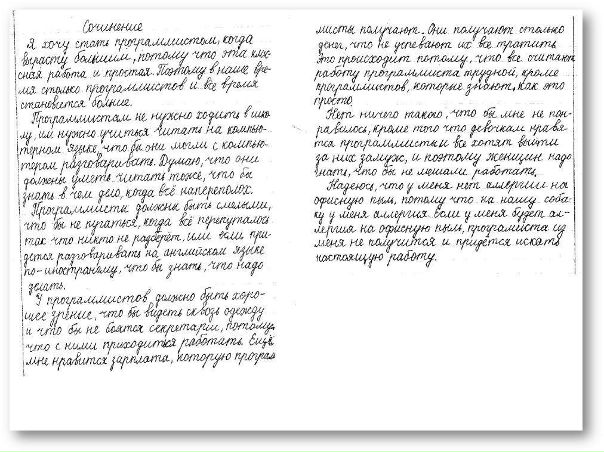 Сочинение
Я хочу стать программистом, когда
вырасту большим, потому что эта клас-
сная работа и простая. Поэтому в наше вре-
мя столько программистов и всё время
становится больше.
Программистам не нужно ходить в шко-
лу, им нужно учиться читать на компью-
терном языке, что бы они могли с компью-
тером разговаривать. Думаю, что они
должны уметь читать тоже, что бы
знать в чем дело, когда всё наперекоплох.
Программисты должны быть смелыми,
что бы не пугаться, когда всё перепуталось
так что никто не разберёт, или если при-
дется разговаривать на английском языке
по-иностраному, что бы знать, что надо
делать.
У программистов должно быть хоро-
шее зрение, что бы видеть сквозь одежду
и что бы не боятся секретарш, потому
что с ними приходиться работать. Ещё
мне нравится зарплата, которую програм
мисты получают. Они получают столько
денег, что не успевают их все тратить.
Это происходит потому, что все считают
работу программиста трудной, кроме
программистов, которые знают, как это
просто.
Нет ничего такого, что бы мне не пон-
равилось, кроме того что девочкам нравят-
ся программисты и все хотят выйти
за них замуж, и поэтому женщин надо
гнать, что бы не мешали работать.
Надеюсь, что у меня нет аллергии на
офисную пыль, потому что на нашу соба-
ку у меня аллергия. Если у меня будет ал-
лергия на офисную пыль, програмиста из
меня не получится и придётся искать
настоящую работу.